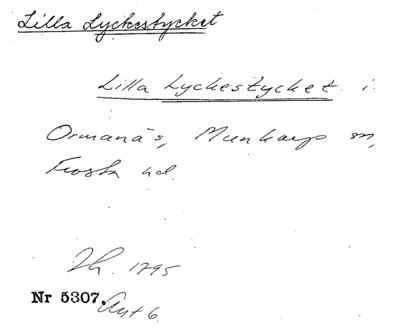 Lilla Lyckestycket
Lilla Lyckestycket i
Ormanäs, Munkarp sn,
Frosta hd.
Lh. 1795
Nr 5307. Akt 6